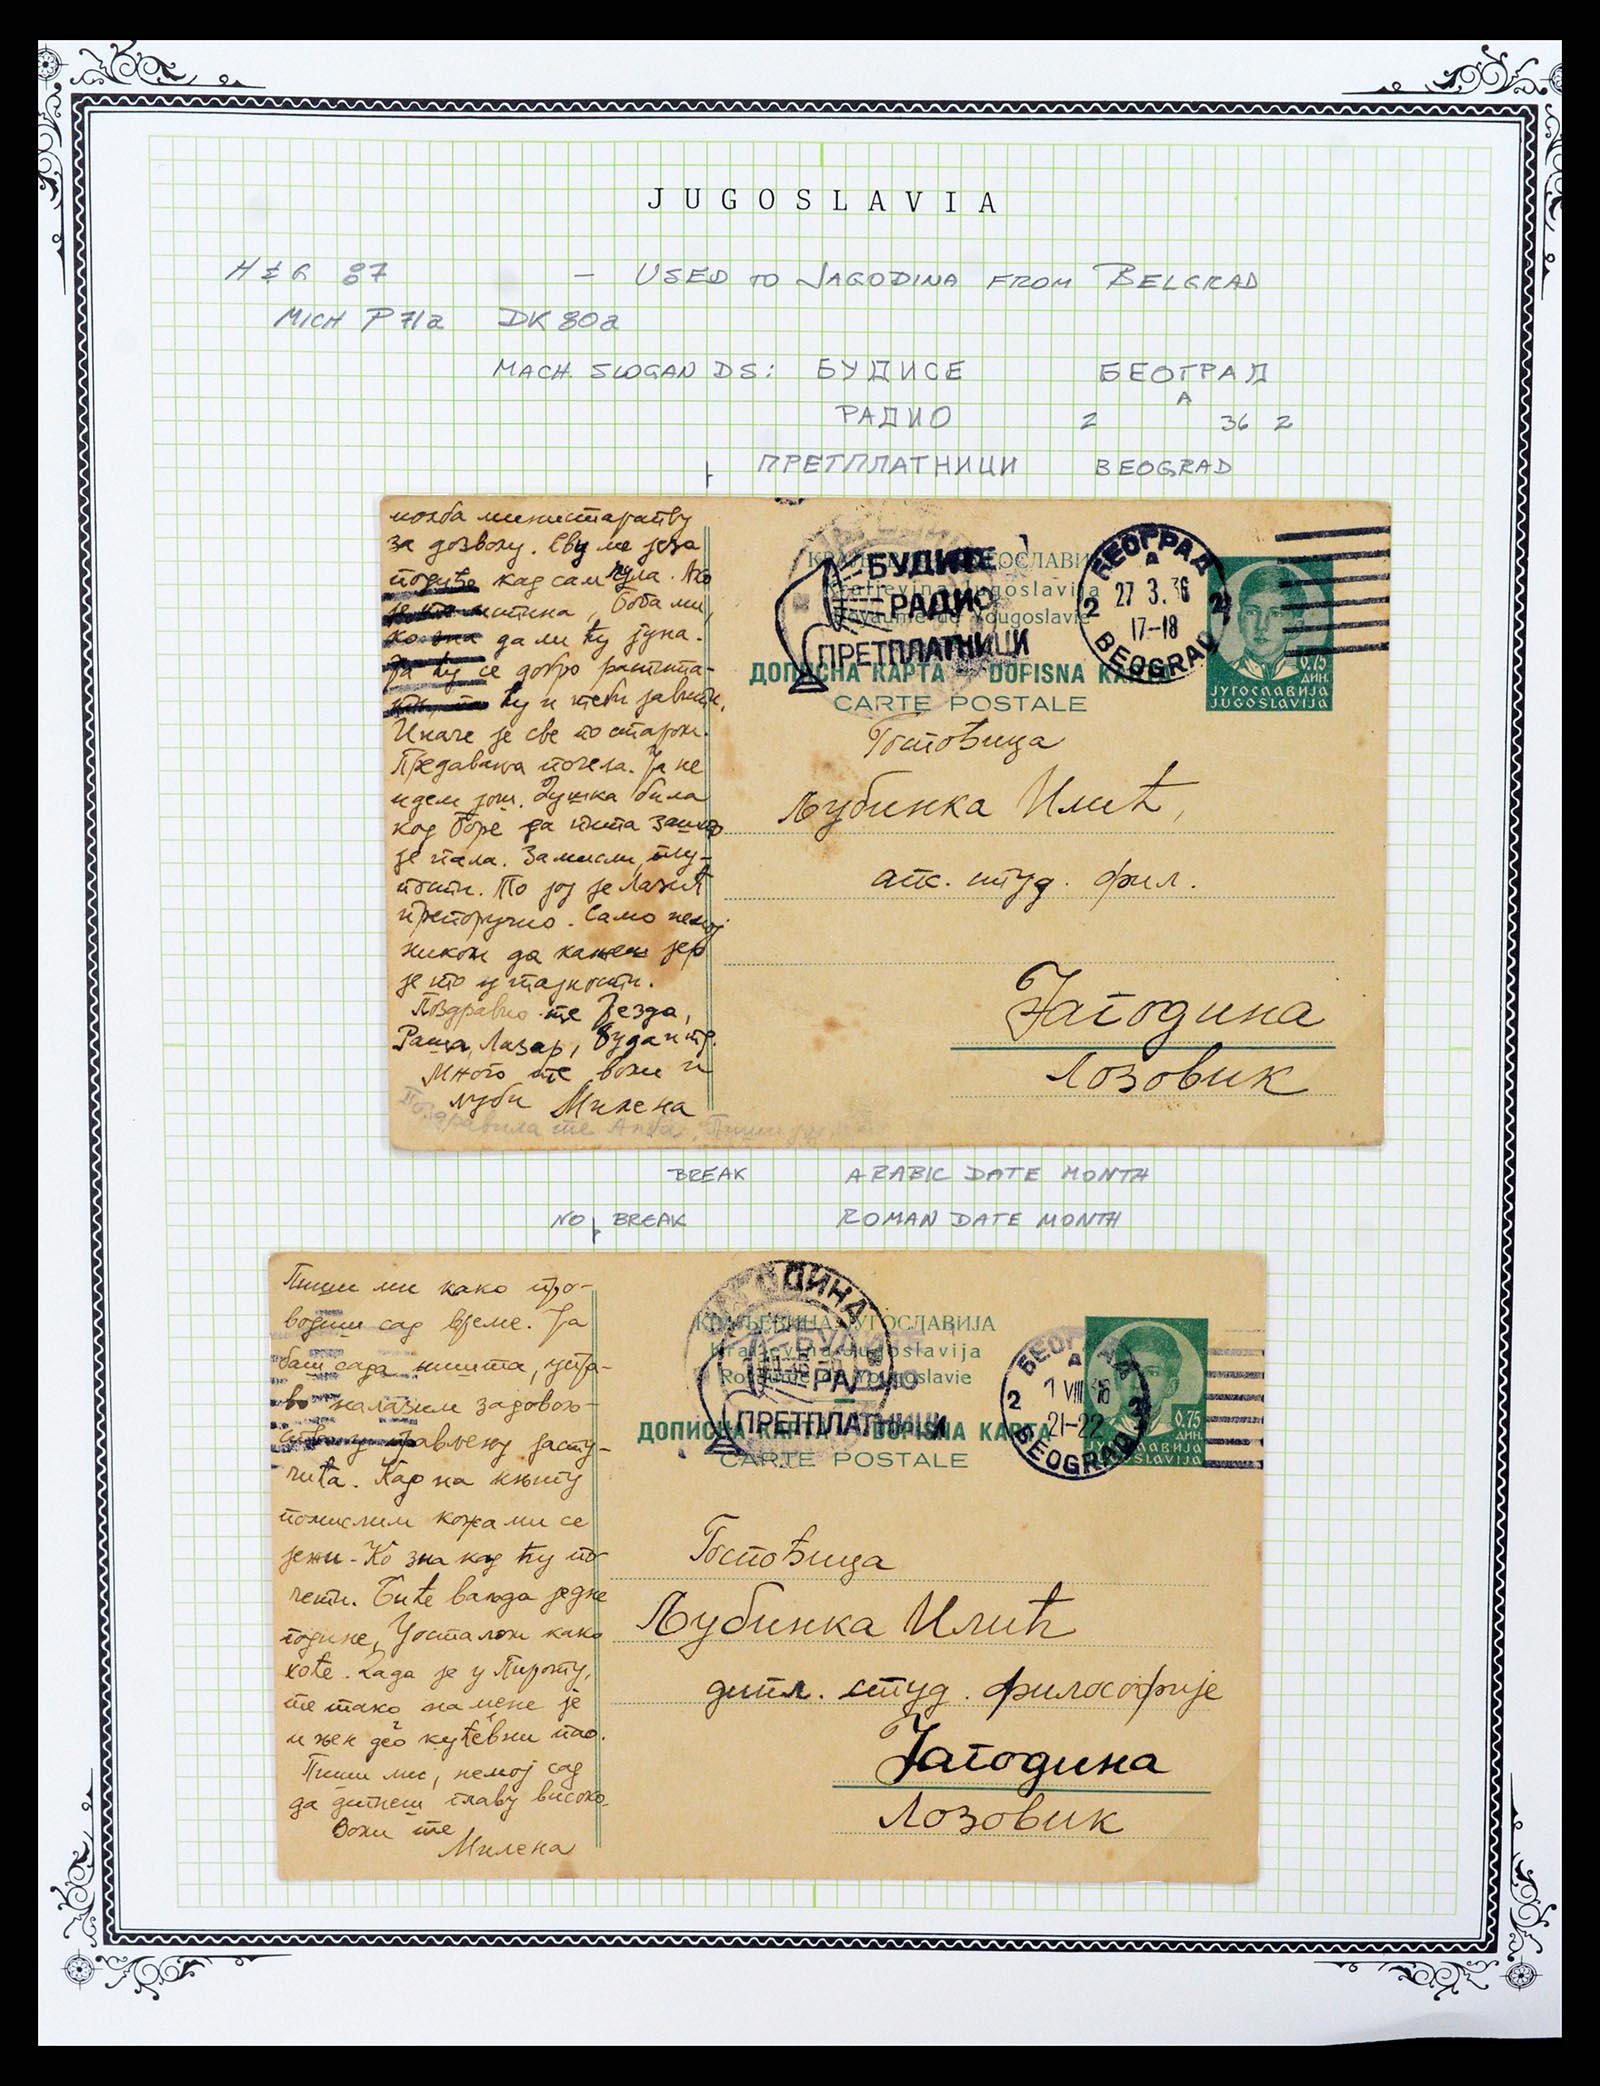 JUGOSLAVIA
H & G 87 – USED TO JAGODINA FROM BELGRAD
MICH P71a DK 80a
MACH. SLOGAN DS: БУДИСЕ БЕОГРАД
A
РАДИО 2 36 2
ПРЕТПЛАТНИЦИ BEOGRAD
молба министарству
за дозволу.
кад сам чула. Ако
истина,
да ли ћу
ћу се добро распита-
ћу и теби јавити.
Иначе је све по старом.
Предавања почела. Ја не
идем још. Душка била
код Боре да пита зашто
је пала. Замисли, глу-
пости. То јој је Лазић
препоручио. Само немој
ником да кажеш јер
је то у тајности.
Поздравио те Звезда,
Раша, Лазар, Буда итд.
Много те воли и
љуби Милена
Поздравила те Анђа, Пиши јој
БУДИТЕ
РАДИО
ПРЕТПЛАТНИЦИ
БЕОГРАД
А
2 27 3. 36 2
17-18
BEOGRAD
КРАЉЕВИНА ЈУГОСЛАВИЈА
Kraljevina Jugoslavija
Royaume de Yougoslavie
ДОПИСНА КАРТА - DOPISNA KARTA
CARTE POSTALE
0.75
ДИН.
ЈУГОСЛАВИЈА
JUGOSLAVIJA
Госпођица
Љубинка Илић,
апс. студ. фил.
Јагодина
Лозовик
BREAK ARABIC DATE MONTH
NO BREAK ROMAN DATE MONTH
Пиши ми како про-
водиш сад време. Ја
баш сада ништа,
налазим задовољ-
јасту-
чића. Кад на књигу
помислим кожа ми се
јежи - Ко зна кад ћу по-
чети. Биће ваљда једне
године, Уосталом како
хоће. Рада је у Пироту,
те тако на мене је
и њен део кућевни пао.
Пиши ми, немој сад
да дигнеш главу високо.
Воли те
Милена
ЈАГОДИНА
БУДИТЕ
РАДИО
ПРЕТПЛАТНИЦИ
БЕОГРАД
А
2 1 VIII 36 2
21-22
BEOGRAD
КРАЉЕВИНА ЈУГОСЛАВИЈА
Kraljevina Jugoslavija
Royaume de Yougoslavie
ДОПИСНА КАРТА - DOPISNA KARTA
CARTE POSTALE
0.75
ДИН.
ЈУГОСЛАВИЈА
JUGOSLAVIJA
Госпођица
Љубинка Илић
дипл. студ. филозофије
Јагодина
Лозовик